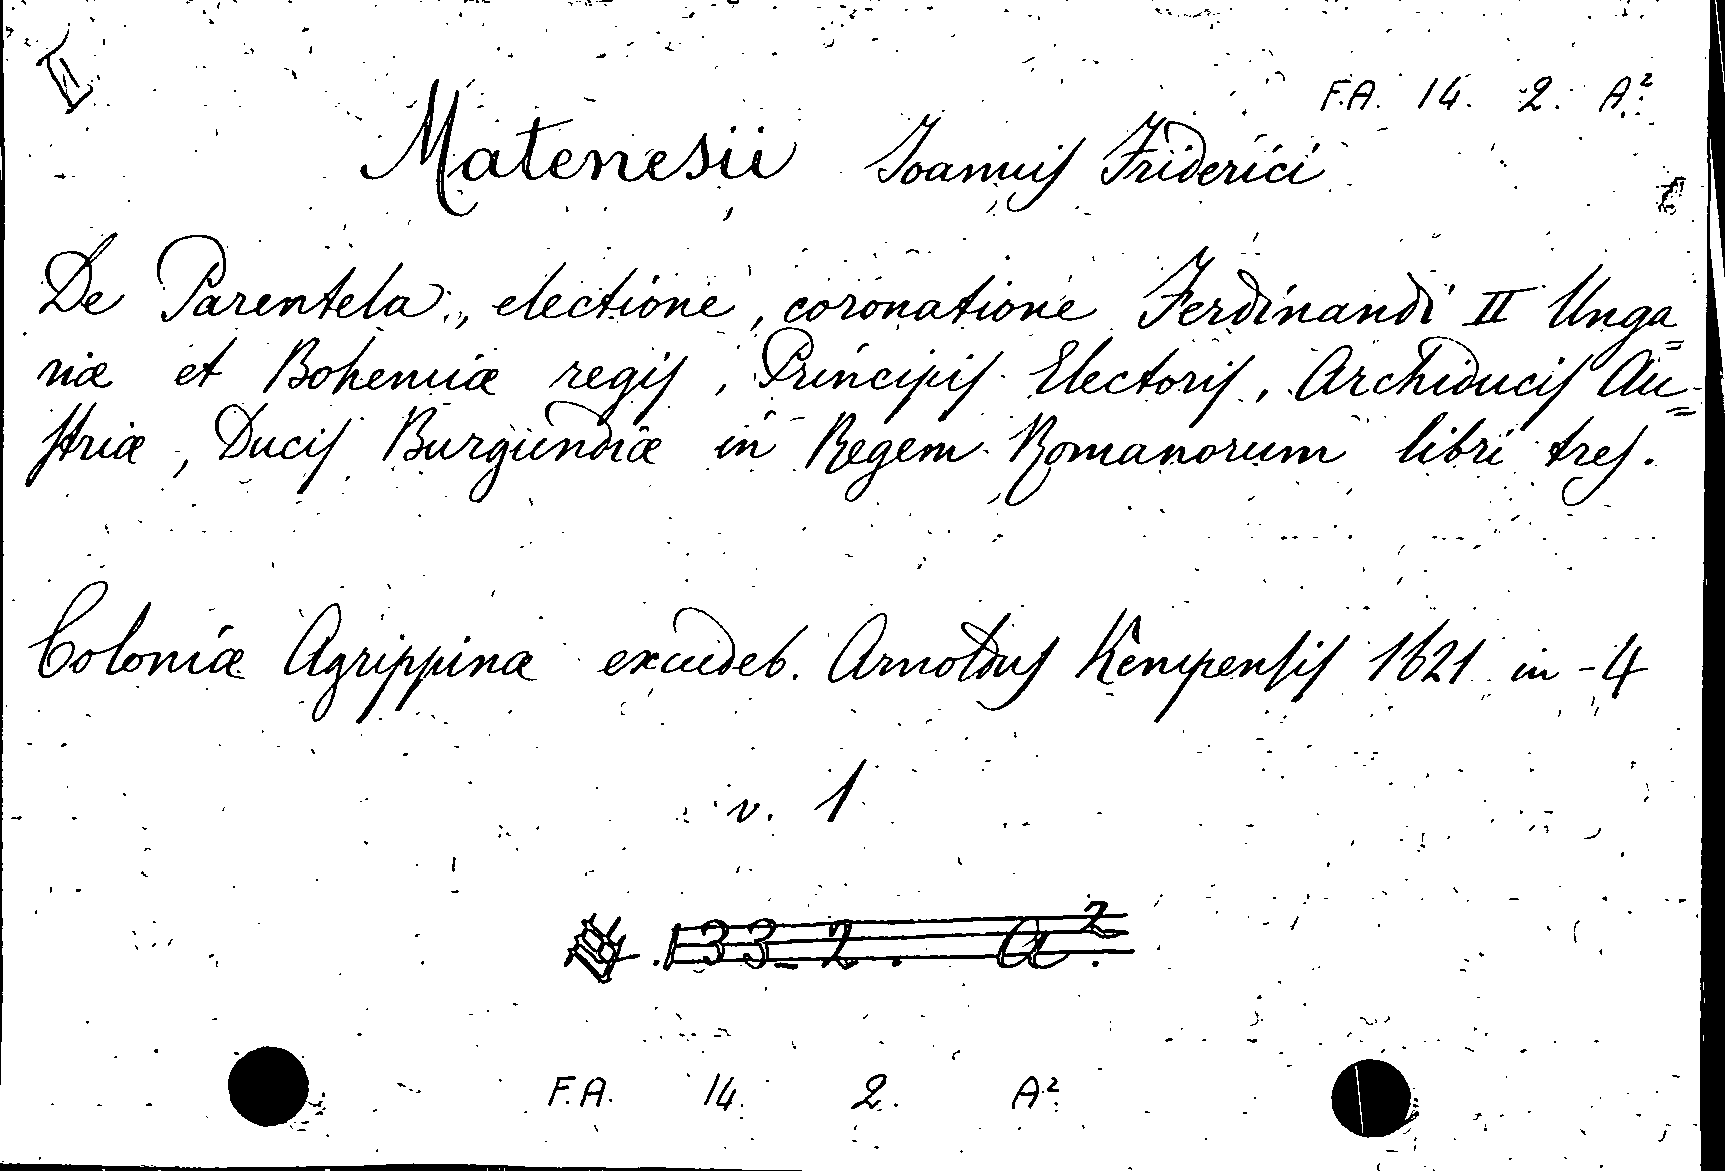 II
F.A. 14. 2. A².
Matenesii Joannis Friderici
De Parentela, electione, coronatione Ferdinandi II Unga=
riæ et Bohemiæ regis, Principis Electoris, Archiducis Au=
striæ, Ducis Burgundiæ in Regem Romanorum libri tres.
Coloniæ Agrippinæ excudeb. Arnoldus Kempensis 1621 in-4
v. 1
133_2. a².
F.A. 14. 2. A².